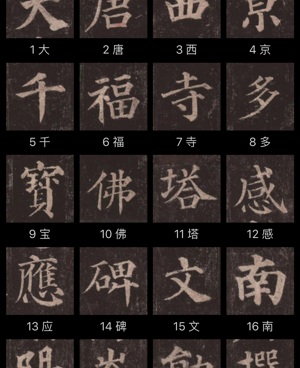 大 唐 西 京
1 大 2 唐 3 西 4 京
千 福 寺 多
5 千 6 福 7 寺 8 多
寶 佛 塔 感
9 宝 10 佛 11 塔 12 感
應 碑 文 南
13 应 14 碑 15 文 16 南